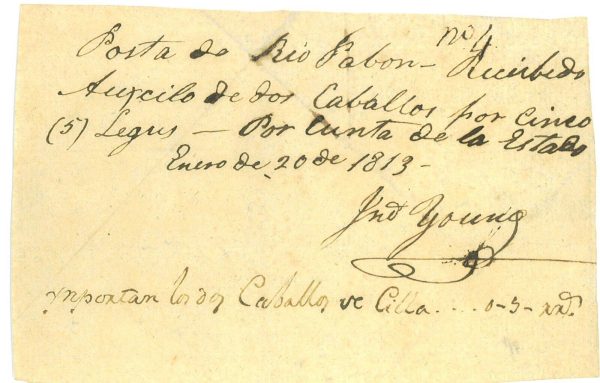 no 4
Posta de Rio Pabon — Recibedo
Auxcilo de dos Caballos por cinco
(5) Legus — Por Cunta de la Estado
Enero de 20 de 1813 -
Jnº Young
ynportan los dos Caballos de Cilla .... 0-5- rr.